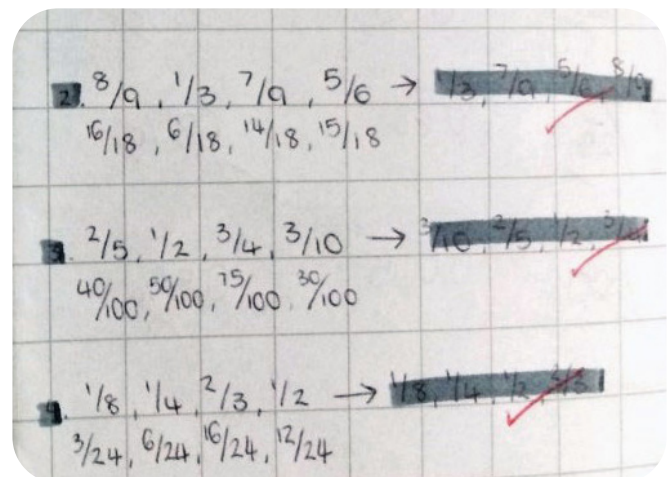 2. 8/9, 1/3, 7/9, 5/6 → 1/3, 7/9, 5/6, 8/9
16/18, 6/18, 14/18, 15/18
3. 2/5, 1/2, 3/4, 3/10 → 3/10, 2/5, 1/2, 3/4
40/100, 50/100, 75/100, 30/100
4. 1/8, 1/4, 2/3, 1/2 → 1/8, 1/4, 1/2, 2/3
3/24, 6/24, 16/24, 12/24